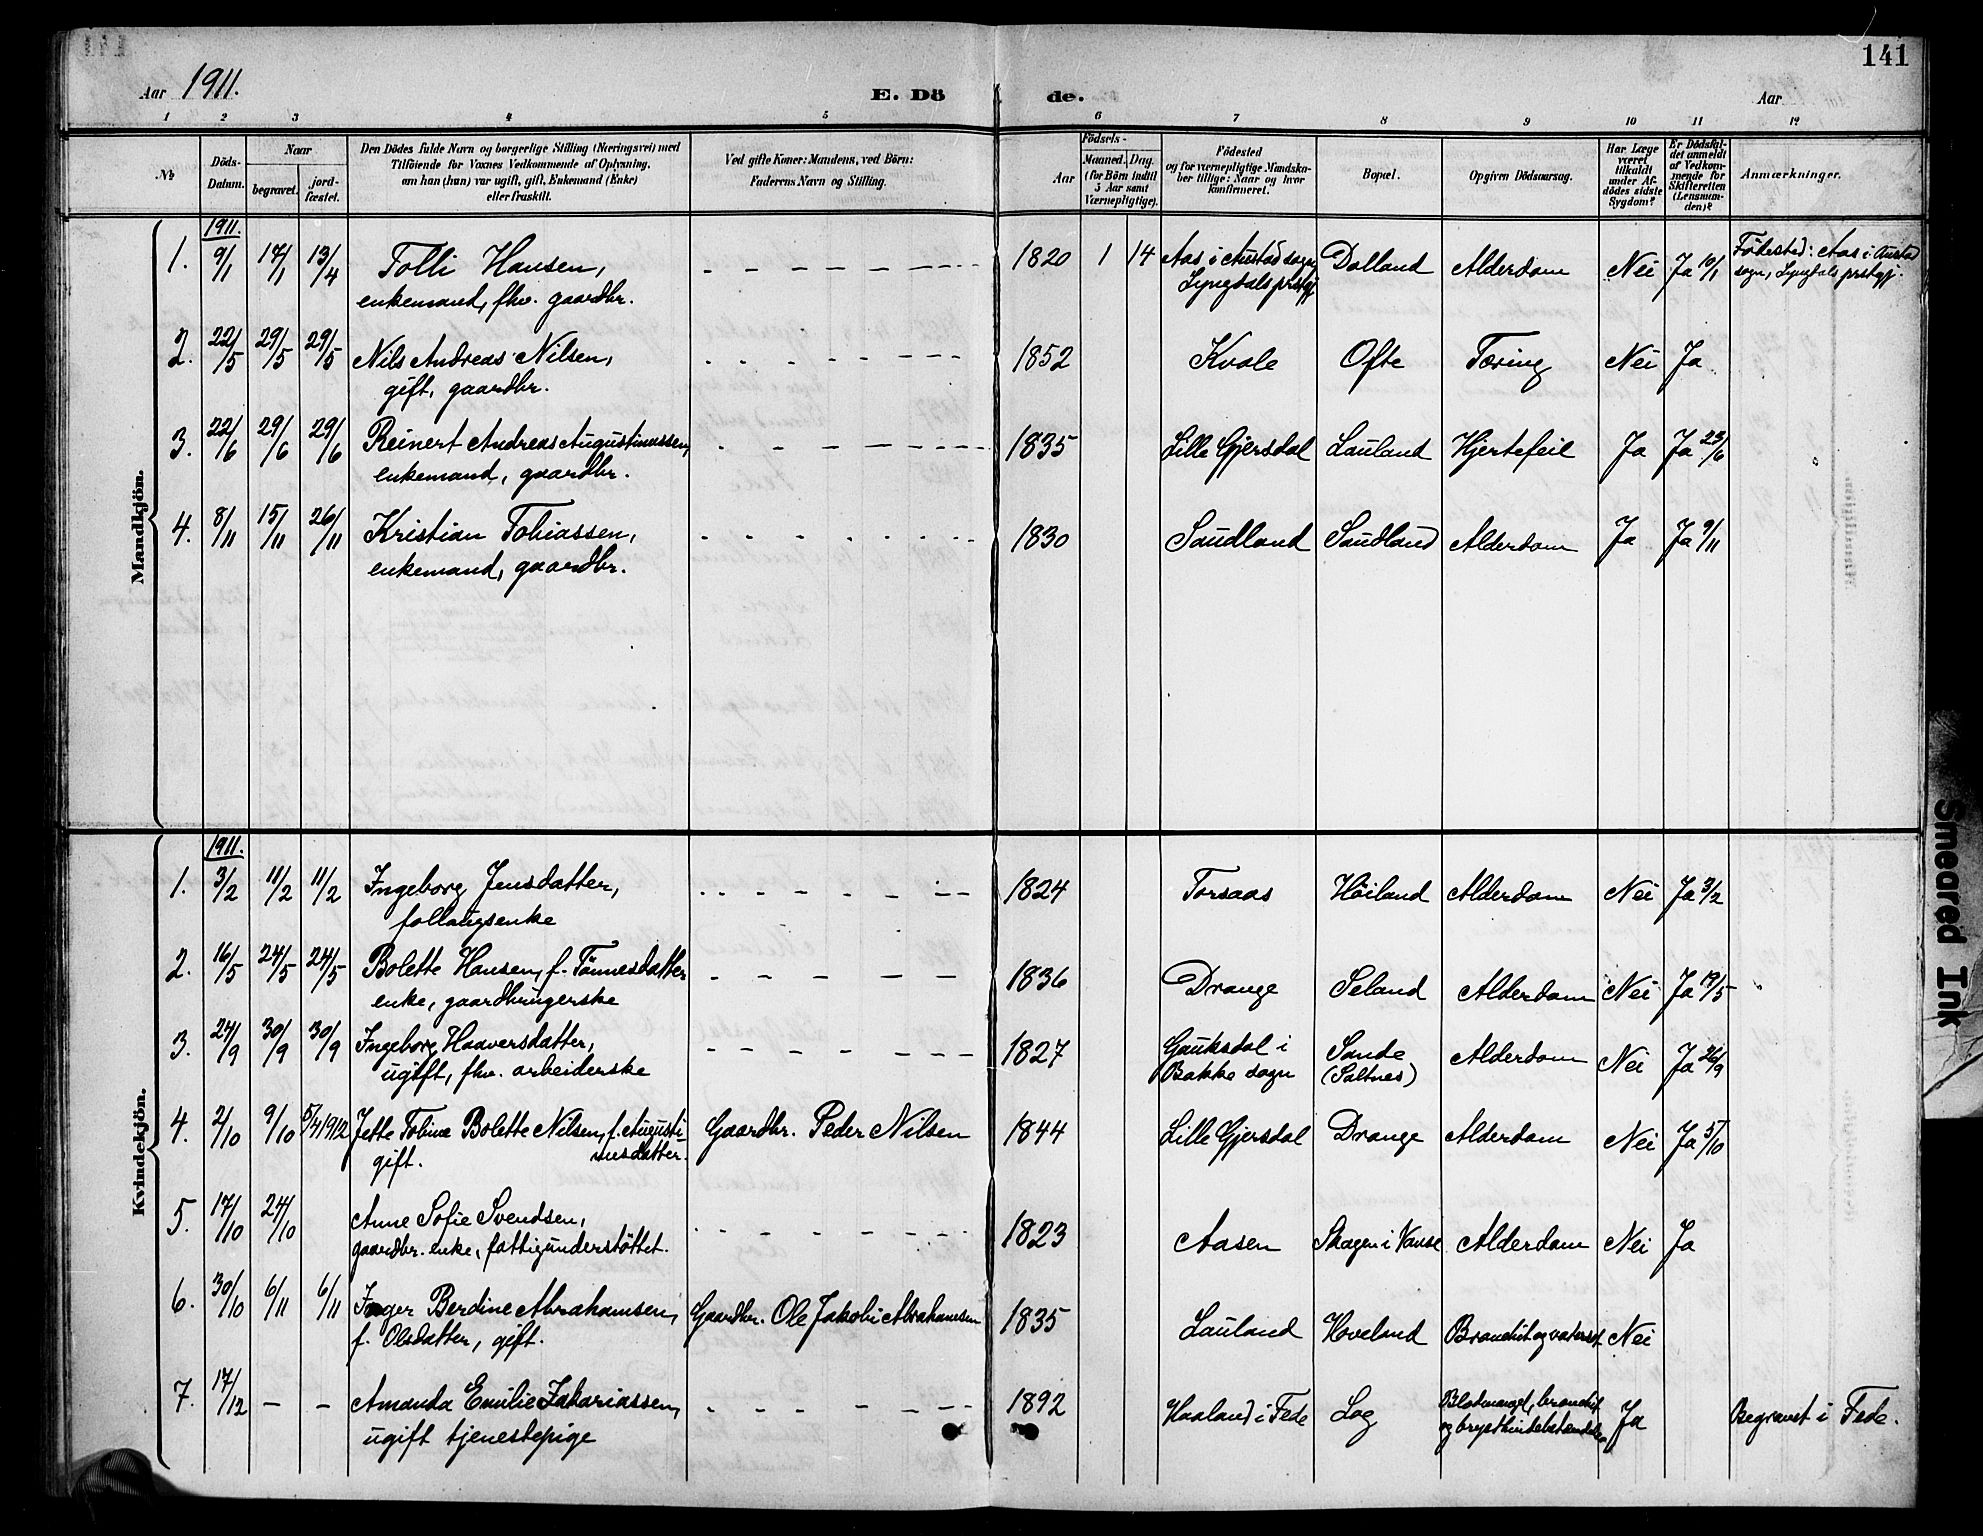 141
Aar 1911. E. Dö de. Aar
1 2 3 4 5 6 7 8 9 10 11 12
№
Döds-Datum.
Naar
begravet.
jord-fæstet.
Den Dödes fulde Navn og borgerlige Stilling (Næringsvei) med
Tilföiende for Voxnes Vedkommende af Oplysning,
om han (hun) var ugift, gift, Enkemand (Enke)
eller fraskilt.
Ved gifte Koner: Mandens, ved Börn:
Faderens Navn og Stilling.
Födsels-
Aar
Maaned. Dag.
(for Börn indtil
5 Aar samt
Værnepligtige).
Födested
og for værnepligtige Mandska-
ber tillige: Naar og hvor
konfirmeret.
Bopæl.
Opgiven Dödsaarsag.
Har Læge
været
tilkaldt
under Af-
dödes sidste
Sygdom?
Er Dödsfal-
det anmeldt
af Vedkom-
mende for
Skifteretten
(Lensman-
den)?
Anmærkninger.
Mandkjön.
1911.
1. 9/1 17/1 13/4 Tolli Hansen, 1820 1 14 Aas i Austad sogn, Dalland Alderdom Nei Ja 10/1 Födested: Aas i Austad
enkemand, fhv. gaardbr. Lyngdals prstgj. sogn, Lyngdals prstgj.
2. 22/5 29/5 29/5 Nils Andreas Nilsen, 1852 Kvale Ofte Tæring Nei Ja
gift, gaardbr.
3. 22/6 29/6 29/6 Reinert Andreas Augustinussen, 1835 Lille Gjersdal Lauland Hjertefeil Ja Ja 23/6
enkemand, gaardbr.
4. 8/11 15/11 26/11 Kristian Tobiassen, 1830 Saudland Saudland Alderdom Ja Ja 9/11
enkemand, gaardbr.
Kvindekjön.
1911.
1. 3/2 11/2 11/2 Ingeborg Jensdatter, 1824 Torsaas Höiland Alderdom Nei Ja 3/2
follaugsenke
2. 16/5 24/5 24/5 Bolette Hansen, f. Tönnesdatter 1836 Drange Seland Alderdom Nei Ja 19/5
enke, gaardbrugerske
3. 24/9 30/9 30/9 Ingeborg Haaversdatter, 1827 Gauksdal i Sande Alderdom Nei Ja 26/9
ugift, fhv. arbeiderske Bakke sogn (Saltnes)
4. 2/10 9/10 5/4 1912 Jette Tobine Bolette Nilsen, f. Augusti- Gaardbr. Peder Nilsen 1844 Lille Gjersdal Drange Alderdom Nei Ja 5/10
gift. nusdatter.
5. 17/10 24/10 Anne Sofie Svendsen, 1823 Aasen Skagen i Vanse Alderdom Nei Ja
gaardbr. enke, fattigunderstöttet.
6. 30/10 6/11 6/11 Inger Berdine Abrahamsen, Gaardbr. Ole Jakob Abrahamsen 1835 Lauland Hoveland Bronchit og vatersot Nei
f. Olsdatter, gift.
7. 17/12 – – Amanda Emilie Zakariassen, 1892 Haaland i Fede Log Blodmangel, bronchit Ja Begravet i Fede.
ugift tjenestepige og brysthindebetændelse
Smeared Ink